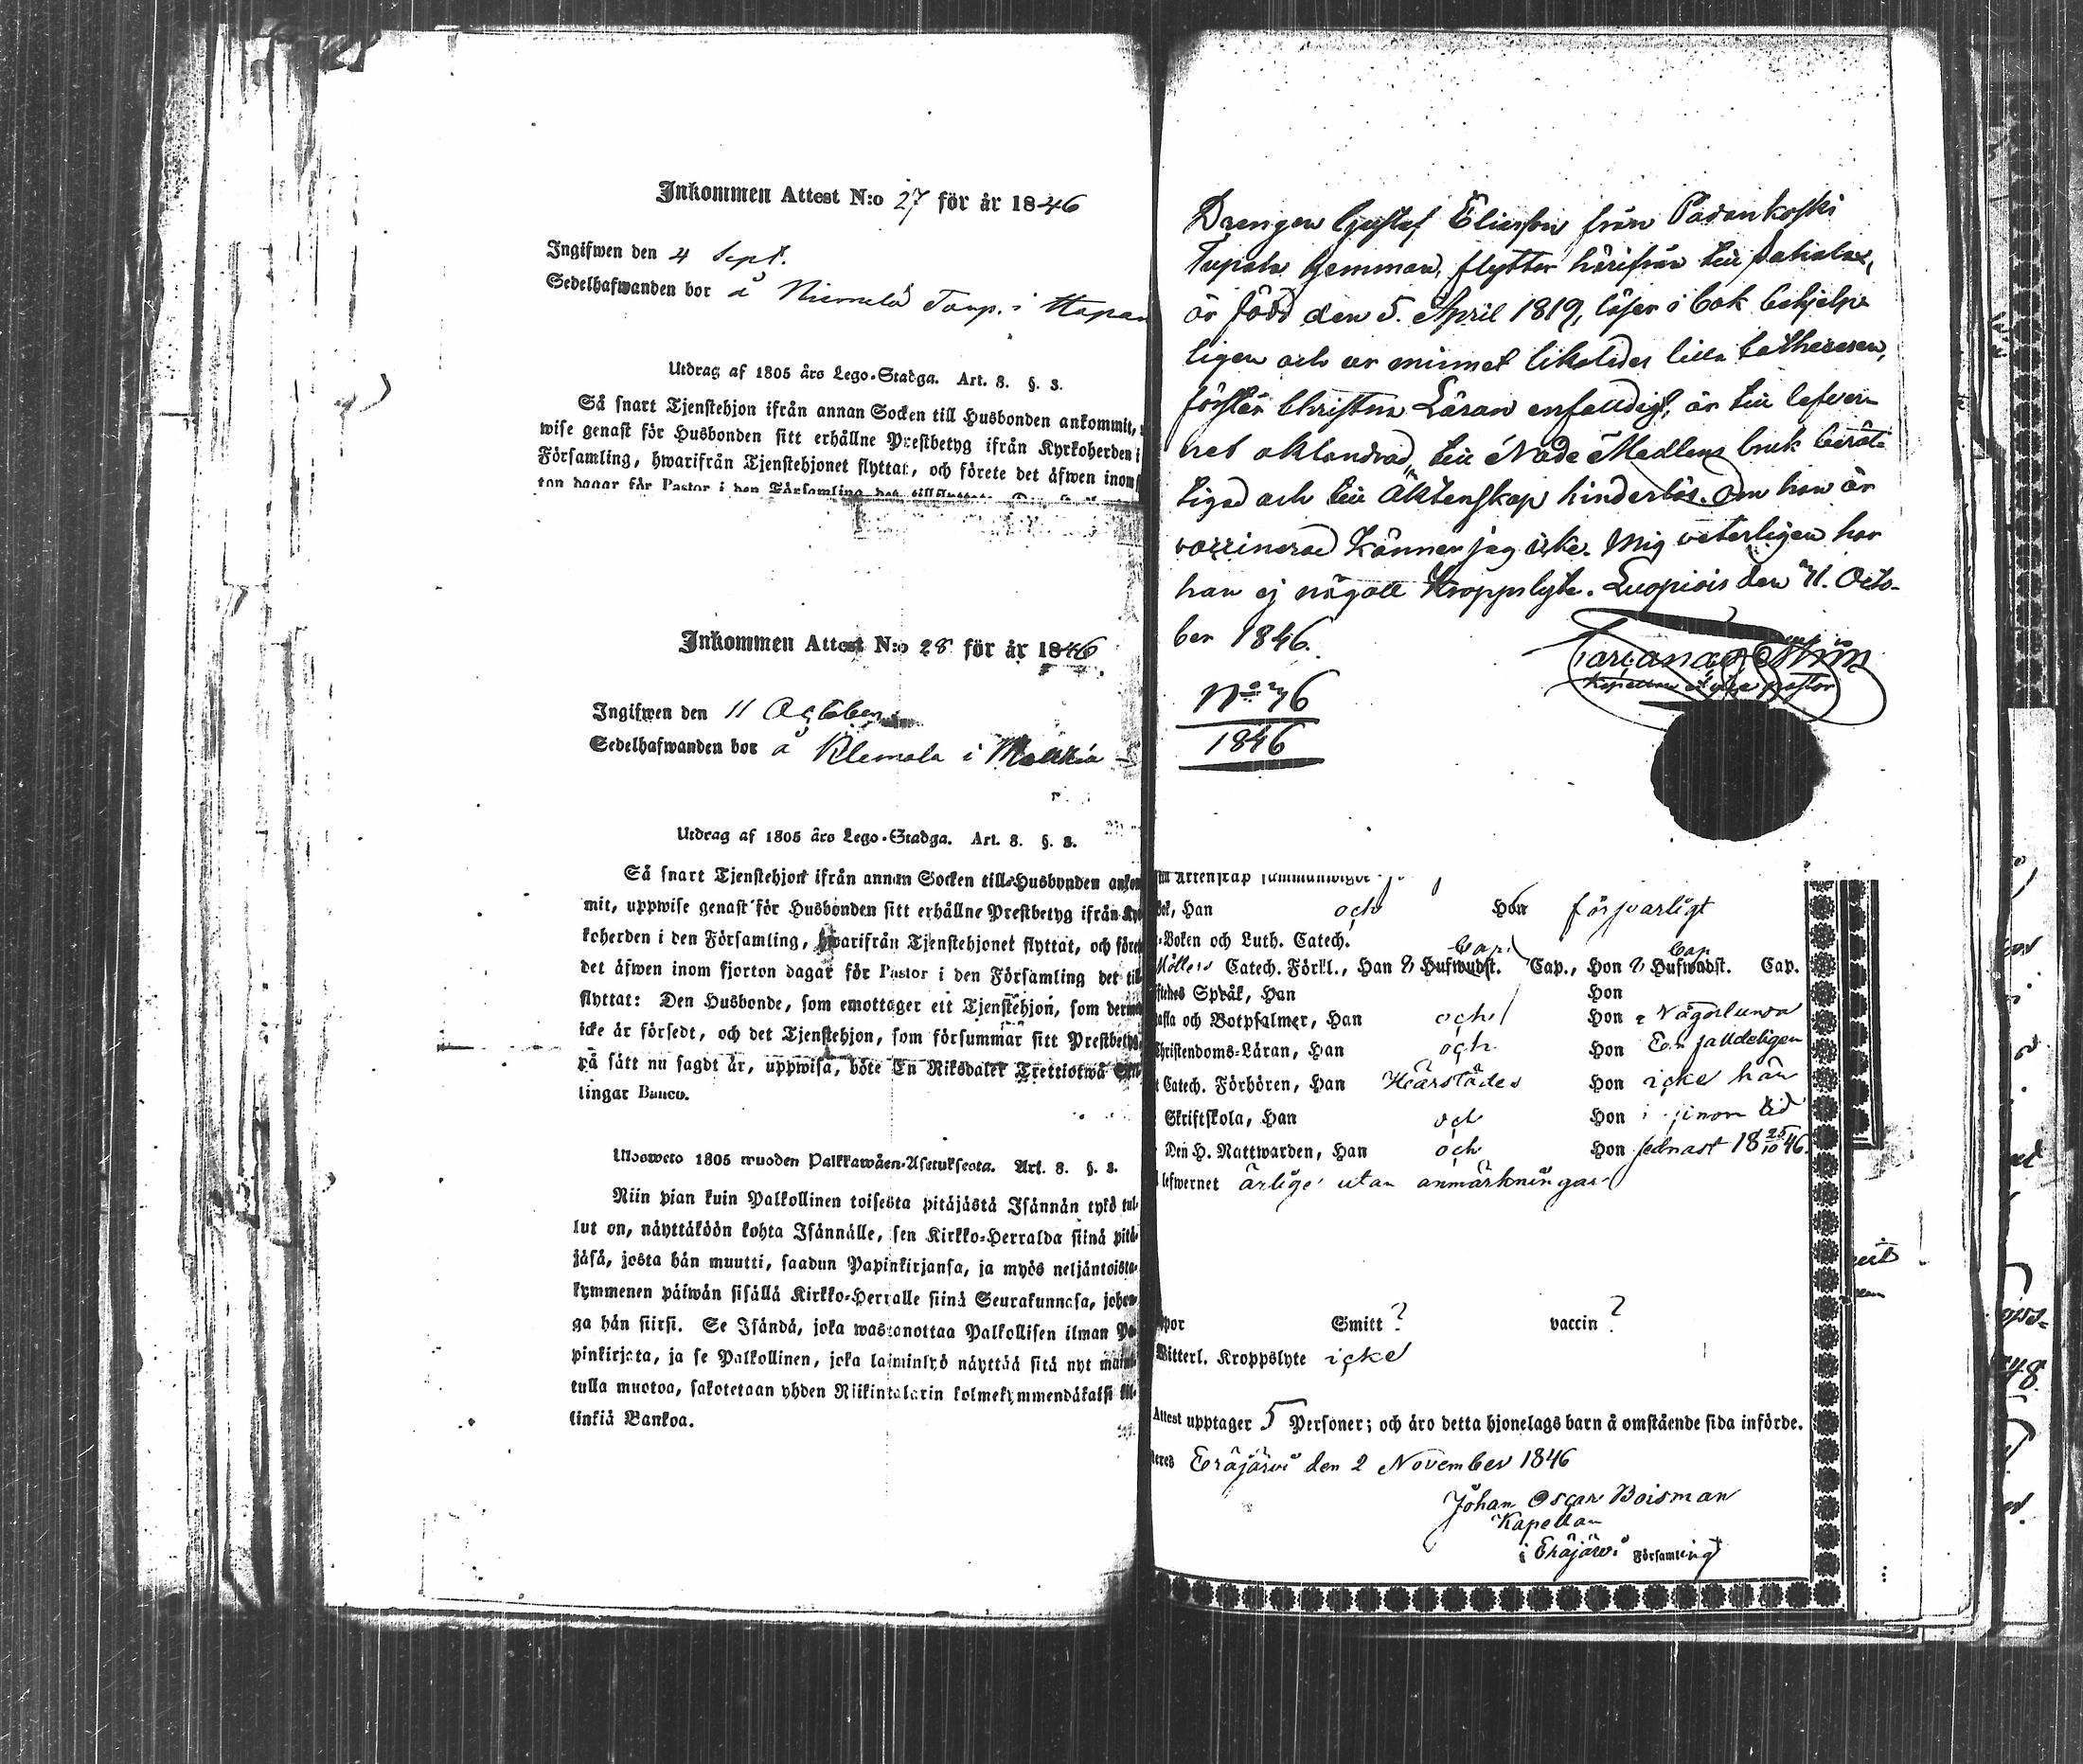 Inkommen Attest N:o 27 för år 1846
Ingifwen den 4 Sept.
Sedelhafwanden bor å Niemelä Torp. i
Utdrag af 1805 års Lego-Stadga. Art. 8. §. 3.
Så snart Tjenstehjon ifrån annan Socken till Husbonden ankommit,
wise genast för Husbonden sitt erhållne Prestbetyg ifrån Kyrkoherden i
Församling, hwarifrån Tjenstehjonet flyttat, och förete det äfwen inom
ton dagar för Pastor i den Församling det tillflyttat:
Inkommen Attest N:o 28 för år 1846
Ingifwen den 11 October
Sedelhafwanden bor å Klemola i
Utdrag af 1805 års Lego-Stadga. Art. 8. §. 3.
Så snart Tjenstehjon ifrån annan Socken till Husbonden ankom
mit, uppwise genast för Husbonden sitt erhållne Prestbetyg ifrån Ky
koherden i den Församling, hwarifrån Tjenstehjonet flyttat, och före
det äfwen inom fjorton dagar för Pastor i den Församling det til
flyttat: Den Husbonde, som emottager ett Tjenstehjon, som dermed
icke är försedt, och det Tjenstehjon, som försummar sitt Prestbetyg,
på sätt nu sagdt är, uppwisa, böte En Riksdaler Trettiotwå Skil
lingar Banco.
Ulosweto 1805 wuoden Palkkawäen-Asetuksesta. Art. 8. §. 3.
Niin pian kuin Palkollinen toisesta pitäjästä Isännän tykö tul-
lut on, näyttäköön kohta Isännälle, sen Kirkko-Herralda siinä pitä-
jäsä, josta hän muutti, saadun Papinkirjansa, ja myös neljäntoista-
kymmenen päiwän sisällä Kirkko-Herralle siinä Seurakunnasa, johon-
ga hän siirsi. Se Isändä, joka wastanottaa Palkollisen ilman Pa
pinkirjata, ja se Palkollinen, joka laiminlyö näyttää sitä nyt maini
tulla muotoa, sakotetaan yhden Riikintalarin kolmekymmendäkaksi kil-
linkiä Bankoa.
Drengen Gustaf Eliasson från Padankoski
Tupala hemman, flyttar härifrån till Sahalax,
är född den 5. April 1819, läser i bok behjelp-
ligen och ur minnet likaledes lilla Cathekesen,
förstår Christna Läran enfaldigt, är till lefver-
net oklandrad, till Nåde Medlens bruk berät-
tigad och till Äktenskap hinderlös. Om han är
vaccinerad känner jag icke. Mig veterligen har
han ej något Kroppslyte. Luopiois den 11. Octo-
ber 1846.
Kapellan
No 46
1846
Han och Hon försvarligt
-Boken och Luth. Catech.
Möllers Catech. Förkl., Han 8 Hufwudst. Cap., Hon 8 Hufwudst. Cap.
Språk, Han Hon
tafla och Botpsalmer, Han och Hon Någorlunda
Christendoms-Läran, Han och Hon Enfalldeligen
Catech. Förhören, Han Härstädes Hon icke här
Skriftskola, Han och Hon i sinom tid
Den H. Nattwarden, Han och Hon sednast 18 25/10 46.
lefwernet ärlige utan anmärkningar
Smitt? vaccin?
Witterl. Kroppslyte icke
Attest upptager 5 Personer; och äro detta hjonelags barn å omstående sida införde.
Eräjärvi den 2 November 1846
Johan Oscar Boisman
Kapellan
i Eräjärvi Församling